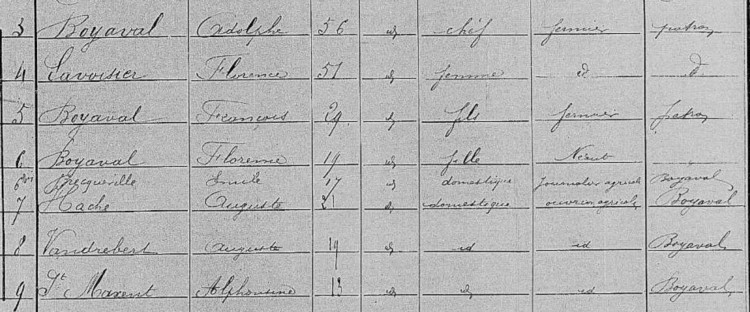 3 Boyaval Adolphe 56 id chef fermier patron
4 Lavoisier Florence 51 id femme d d
5 Boyaval François 29 id fils fermier patron
6 Boyaval Florence 19 id fille Néant
6bis Becqueville Emile 17 id domestique journalier agricole Boyaval
7 Haché Auguste 21 id domestique ouvrier agricole Boyaval
8 Vandrebert Auguste 19 id id id Boyaval
9 St Maxent Alphonsine 13 id id id Boyaval